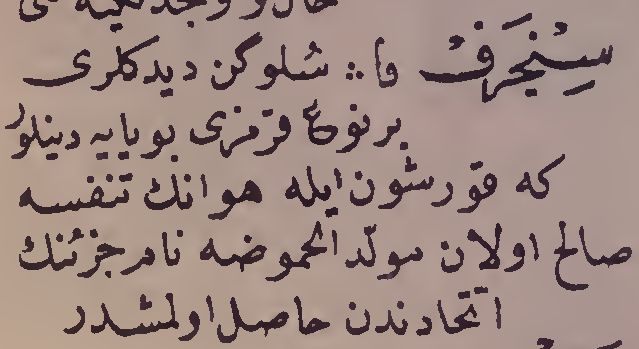 سِنْجَرفْ فا ۞ سُلوگن دیدکلری
برنوع قرمزی بویایه دینلور
که قورشون ایله هوانك تنفسه
صالح اولان مولّد الحموضه نام جزئنك
اتّحادندن حاصل اولمشدر